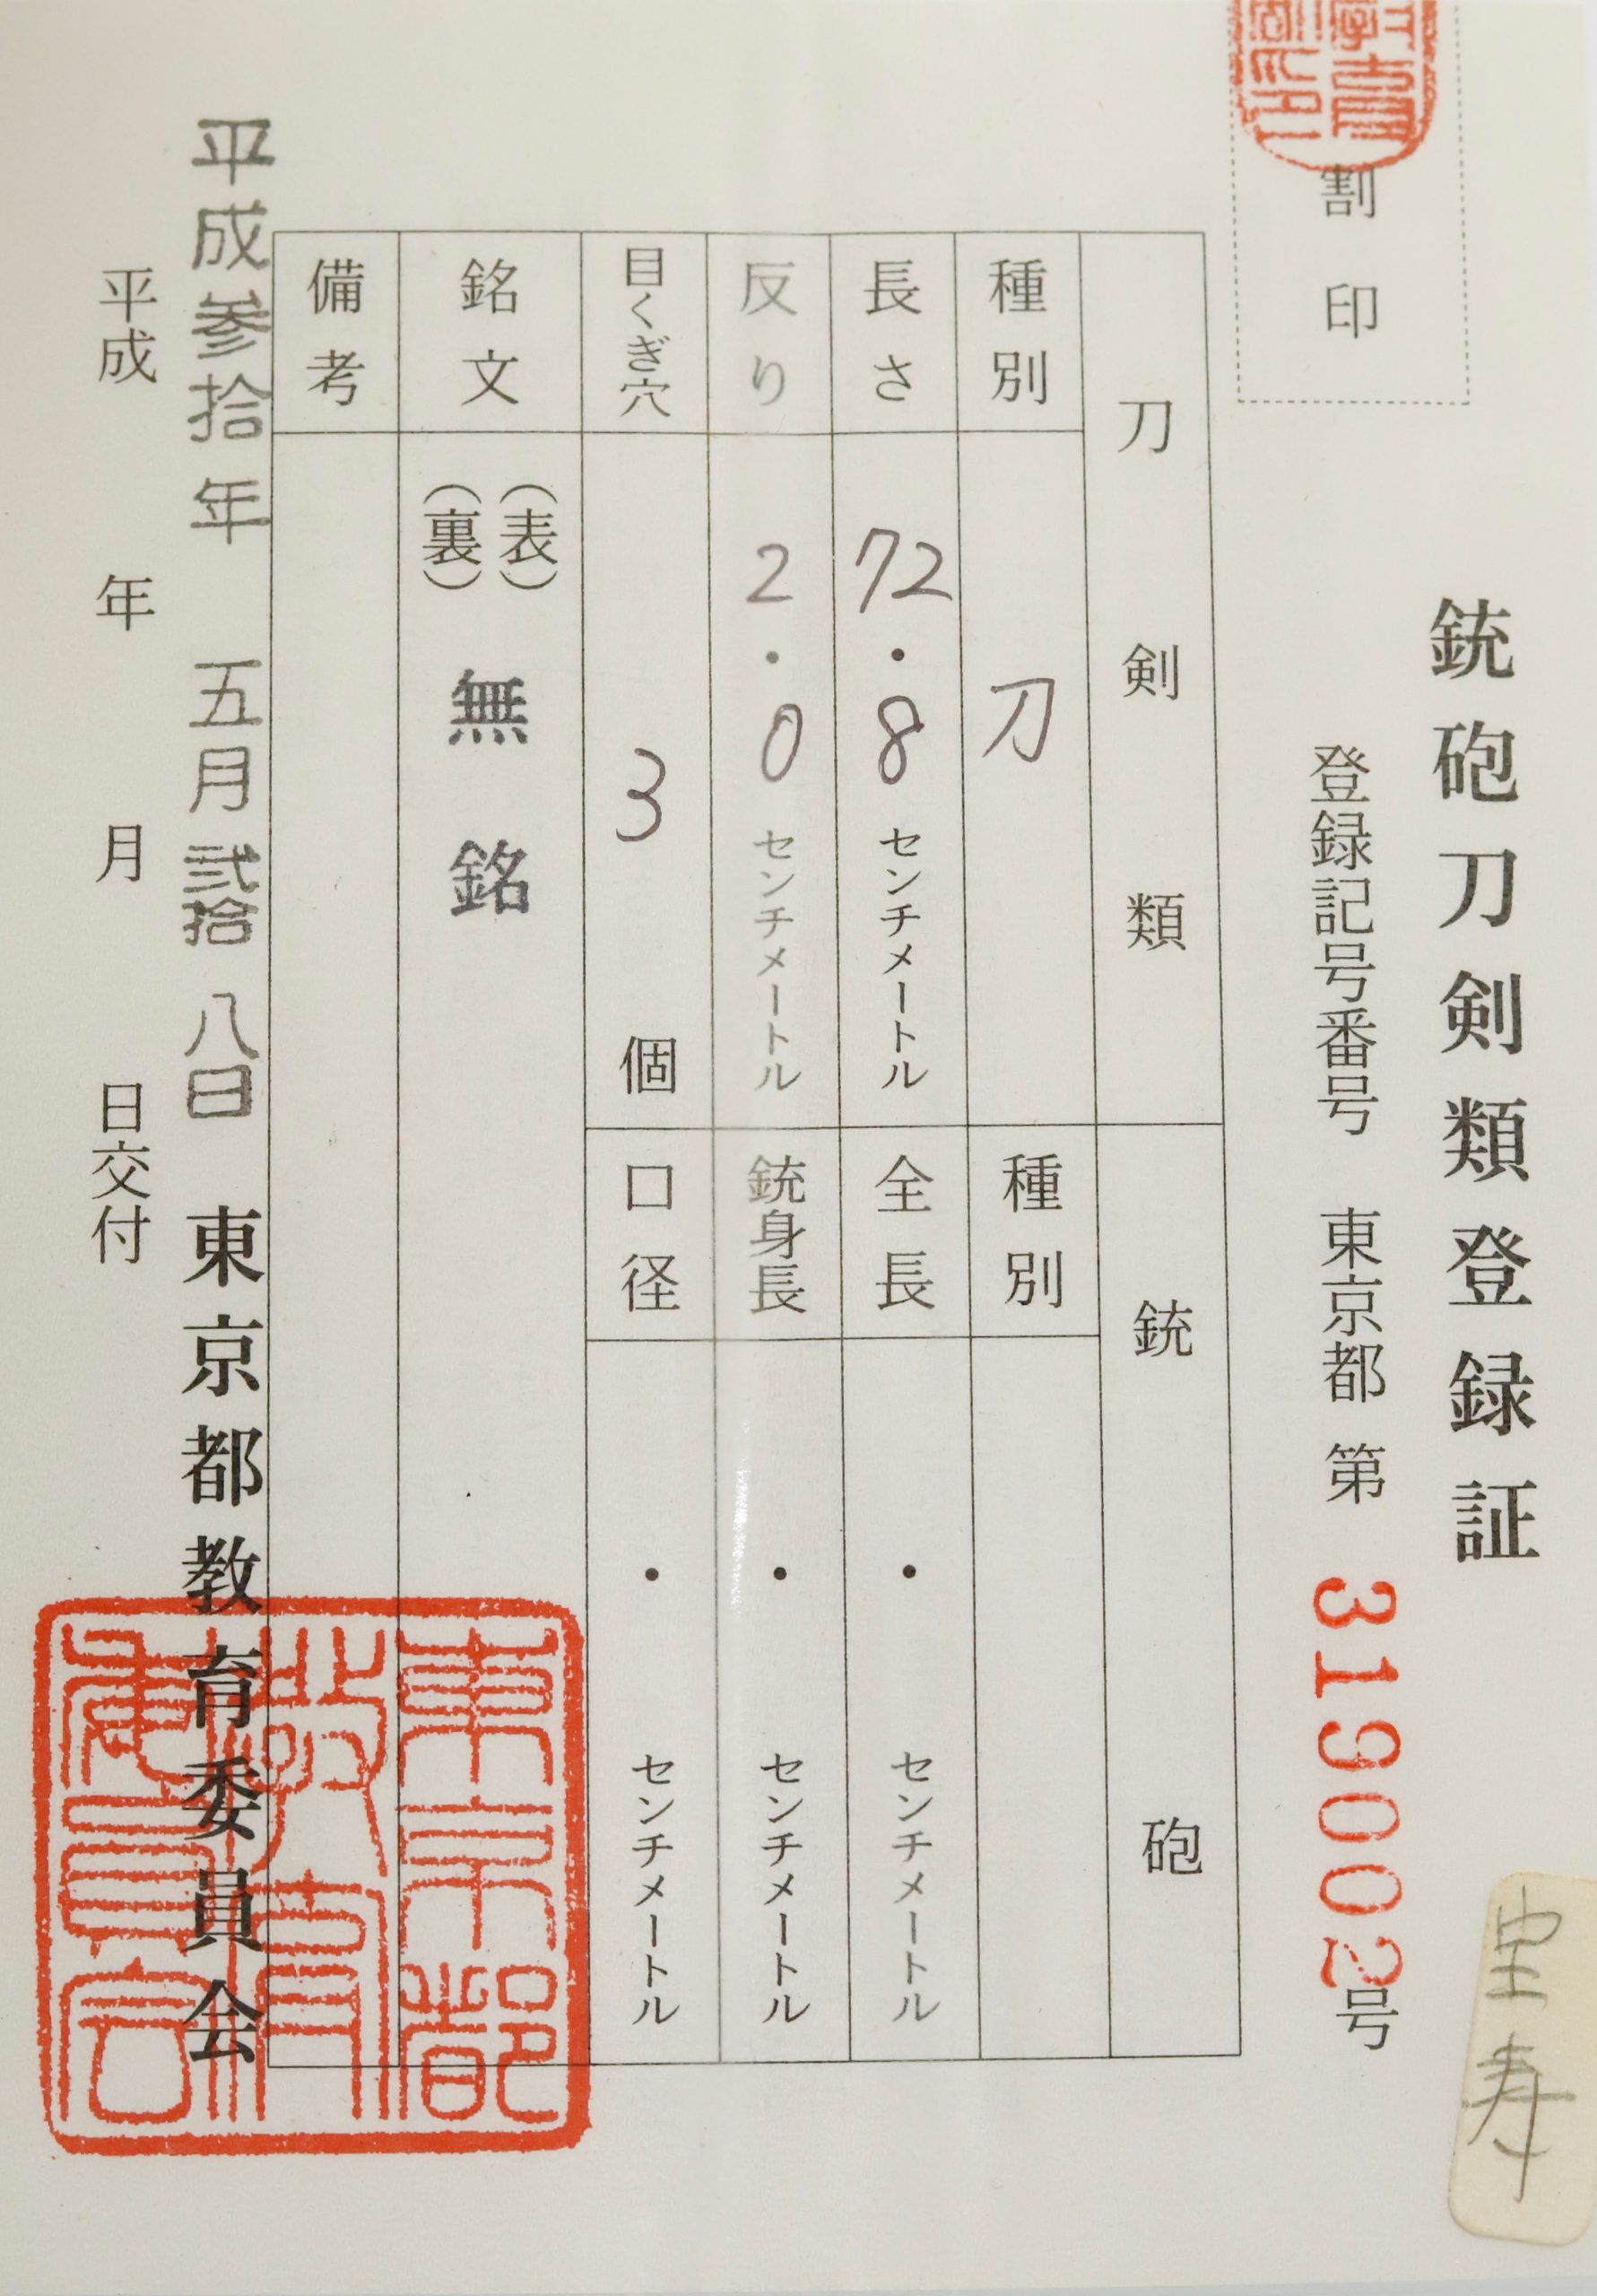 銃砲刀剣類登録証
登録記号番号 東京都 第 319002号
割印
刀剣類
種別 刀
長さ 72.8センチメートル
反り 2.0センチメートル
目くぎ穴 3個
銘文 (表) 無銘
(裏)
備考
銃砲
種別
全長 ・ センチメートル
銃身長 ・ センチメートル
口径 ・ センチメートル
平成参拾年 五月弐拾八日 東京都教育委員会
平成 年 月 日交付
東京都
教育
委員会